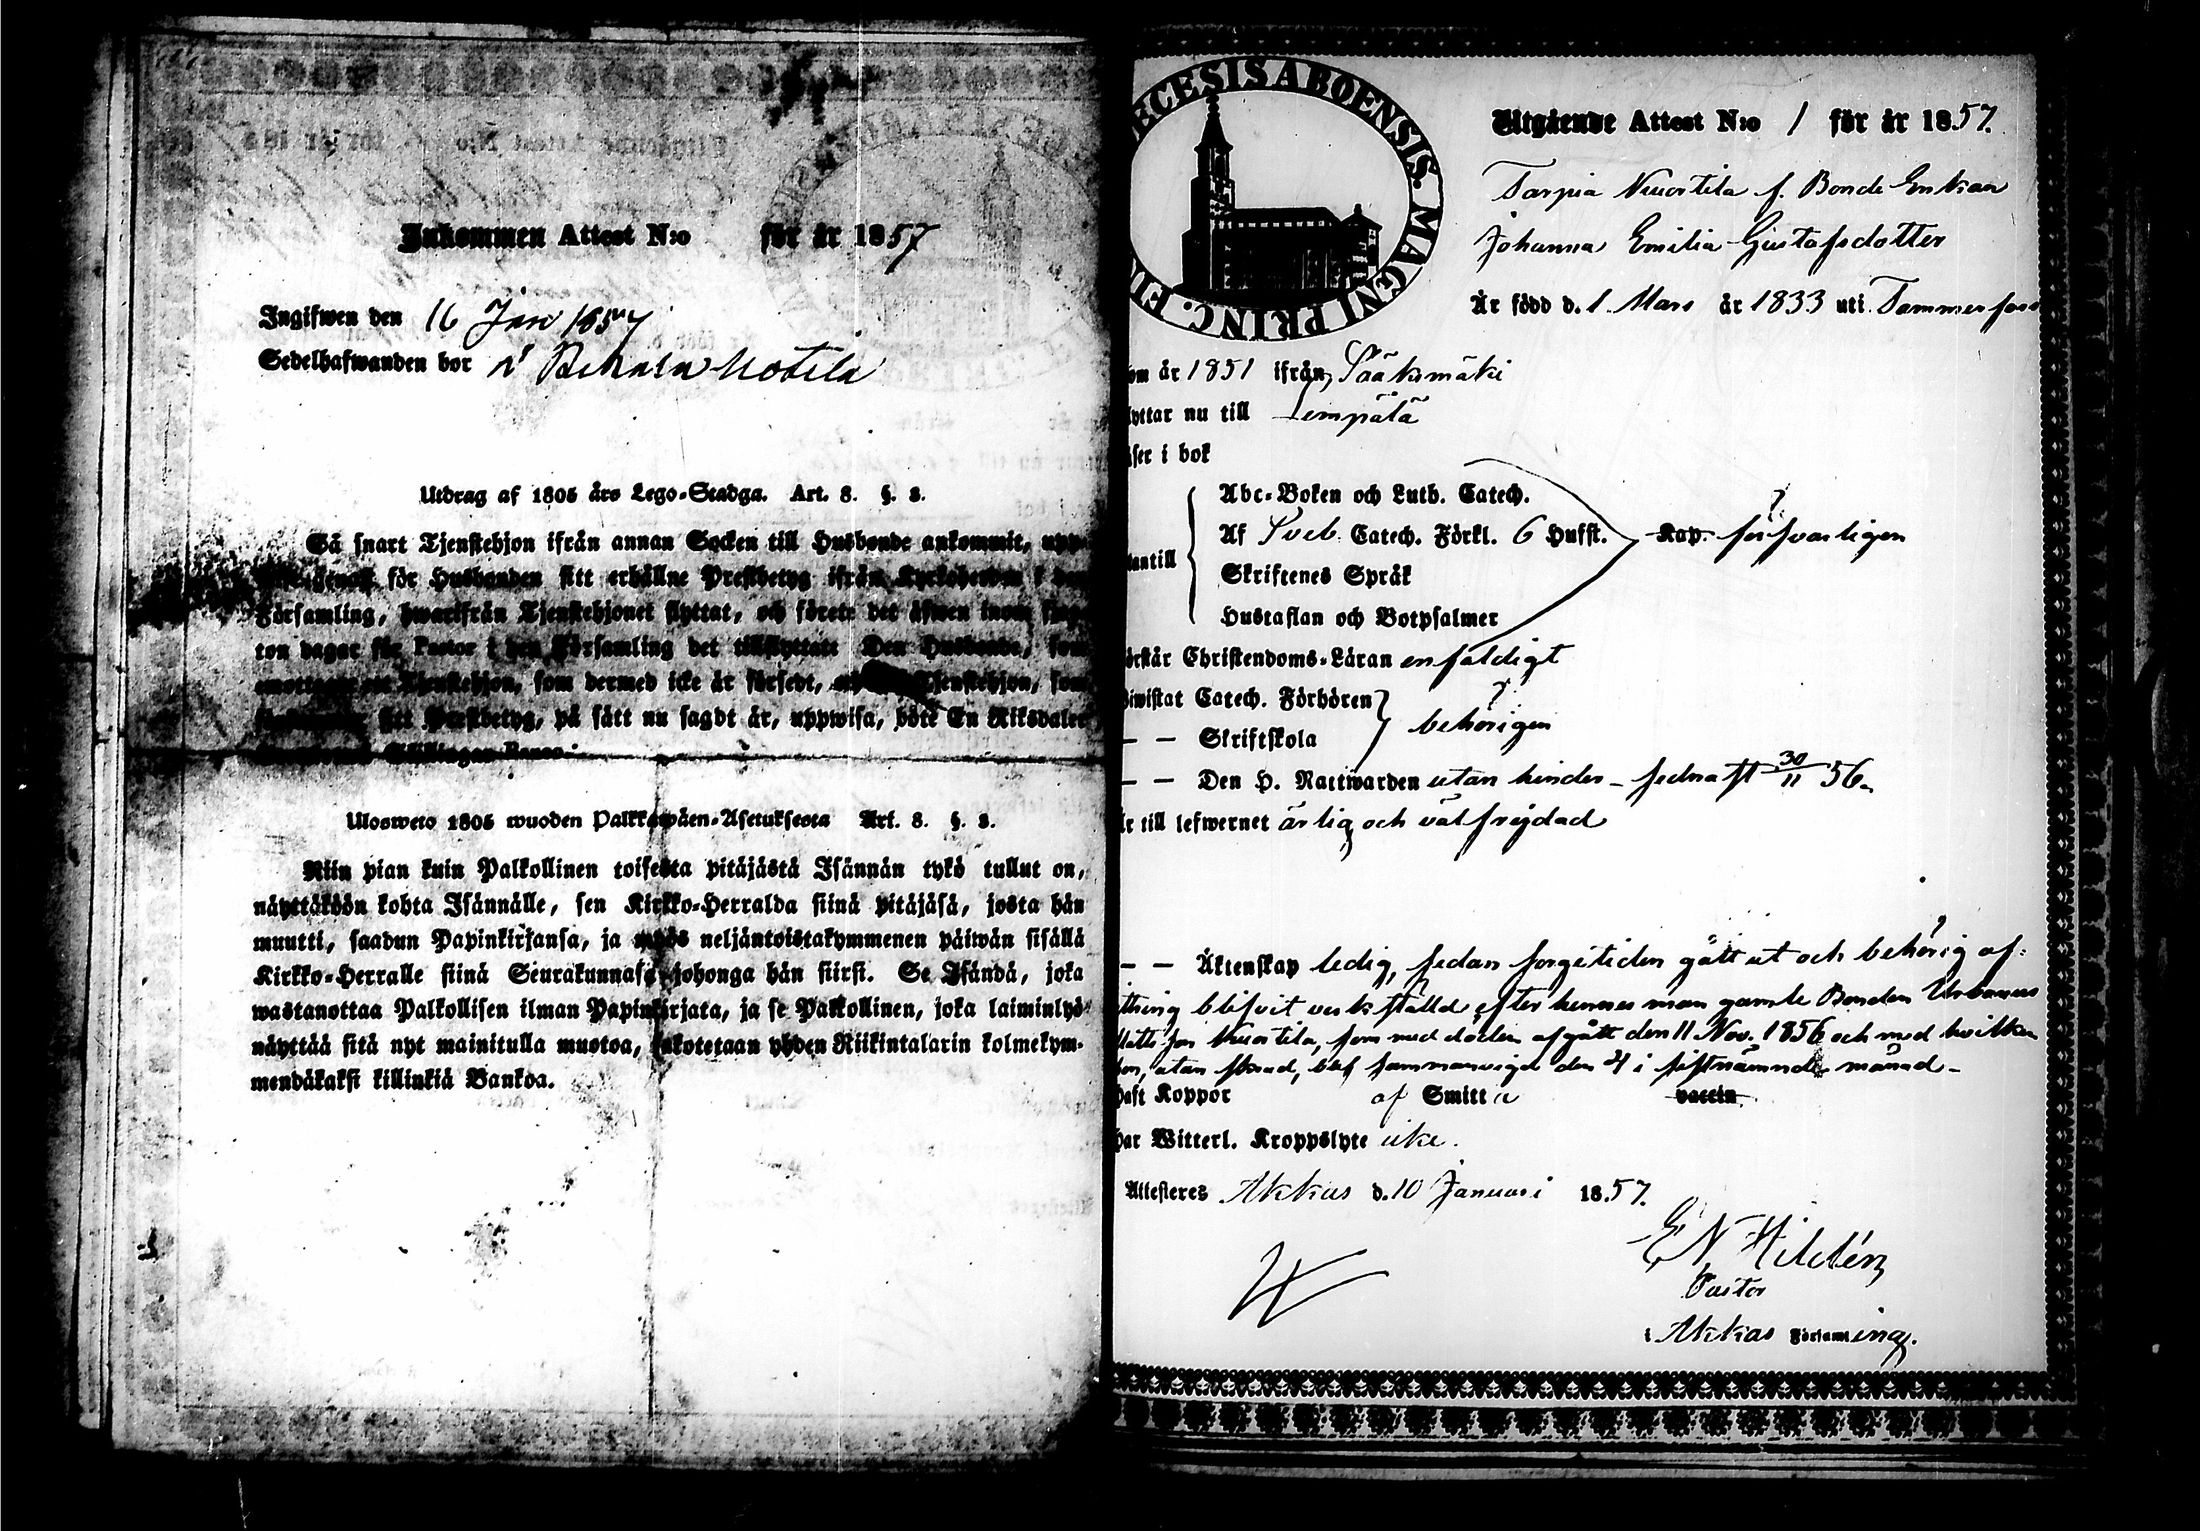 Inkommen Attest N:o för år 1857
Ingifwen den 16 Jan 1857
Sedelhafwanden bor i
Utdrag af 1805 års Lego-Stadga. Art. 8. §. 8.
Så snart Tjenstehjon ifrån annan Socken till Husbonde ankommit,
för Husbonden sitt erhållne Prestbetyg ifrån Kyrkoherden i
Församling, hwarifrån Tjenstehjonet flyttat, och förete det äfwen inom
ton dagar för Pastor i den Församling det tillflyttat. Den Husbonde, som
Tjenstehjon, som dermed icke är försedt, Tjenstehjon, som
sitt Prestbetyg, på sätt nu sagdt är, uppwisa, böte En Riksdaler
Skillingar Banco.
Ulosweto 1805 wuoden Palkkawäen-Asetuksesta Art. 8. §. 8.
Niin pian kuin Palkollinen toisesta pitäjästä Isännän tykö tullut on,
näyttäköön kohta Isännälle, sen Kirkko-Herralda siinä pitäjäsä, josta hän
muutti, saadun Papinkirjansa, ja myös neljäntoistakymmenen päiwän sisällä
Kirkko-Herralle siinä Seurakunnasa johonga hän siirsi. Se Isändä, joka
wastanottaa Palkollisen ilman Papinkirjata, ja se Palkollinen, joka laiminlyö
näyttää sitä nyt mainitulla muotoa, sakotetaan yhden Riikintalarin kolmekym-
mendäkaksi killinkiä Bankoa.
ECESIS ABOENSIS. MAGNI PRINC. FIN
Utgående Attest N:o 1 för år 1857.
Tarpia Nuortila f. Bonde Enkan
Johanna Emilia Gustafsdotter
Är född d. 1 Mars år 1833 uti Tammerfors
om år 1851 ifrån Sääksmäki
lyttar nu till Lempälä
äser i bok
antill
Abc-Boken och Luth. Catech.
Af Sveb. Catech. Förkl. 6 Hufst. Kap. försvarligen
Skriftenes Språk
Hustaflan och Botpsalmer
örstår Christendoms-Läran enfaldigt
iwistat Catech. Förhören
— — Skriftskola behörigen
— — Den H. Nattwarden utan hinder - sednast 30/11 56.
r till lefwernet ärlig och välfrejdad
— — Äktenskap ledig, sedan sorgetiden gått ut och behörig af-
ttring blifvit verkställd efter hennes man gamle Bonden Urbanus
Nuortila, som med döden afgått den 11 Nov. 1856 och med hvilken
hon, utan blef sammanvigd den 4 i sistnämnde månad -
haft Koppor af Smitta vaccin
har Witterl. Kroppslyte icke.
Attesteres Akkas d. 10 Januari 1857.
E N Hildén
Pastor
i Akkas Församling.